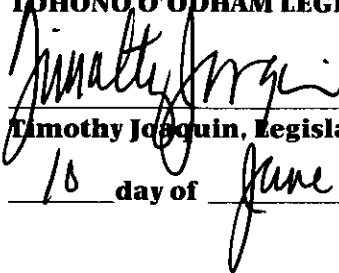 TOHONO O'ODHAM LEGI
Timothy Joaquin
Timothy Joaquin, Legisla
10 day of June